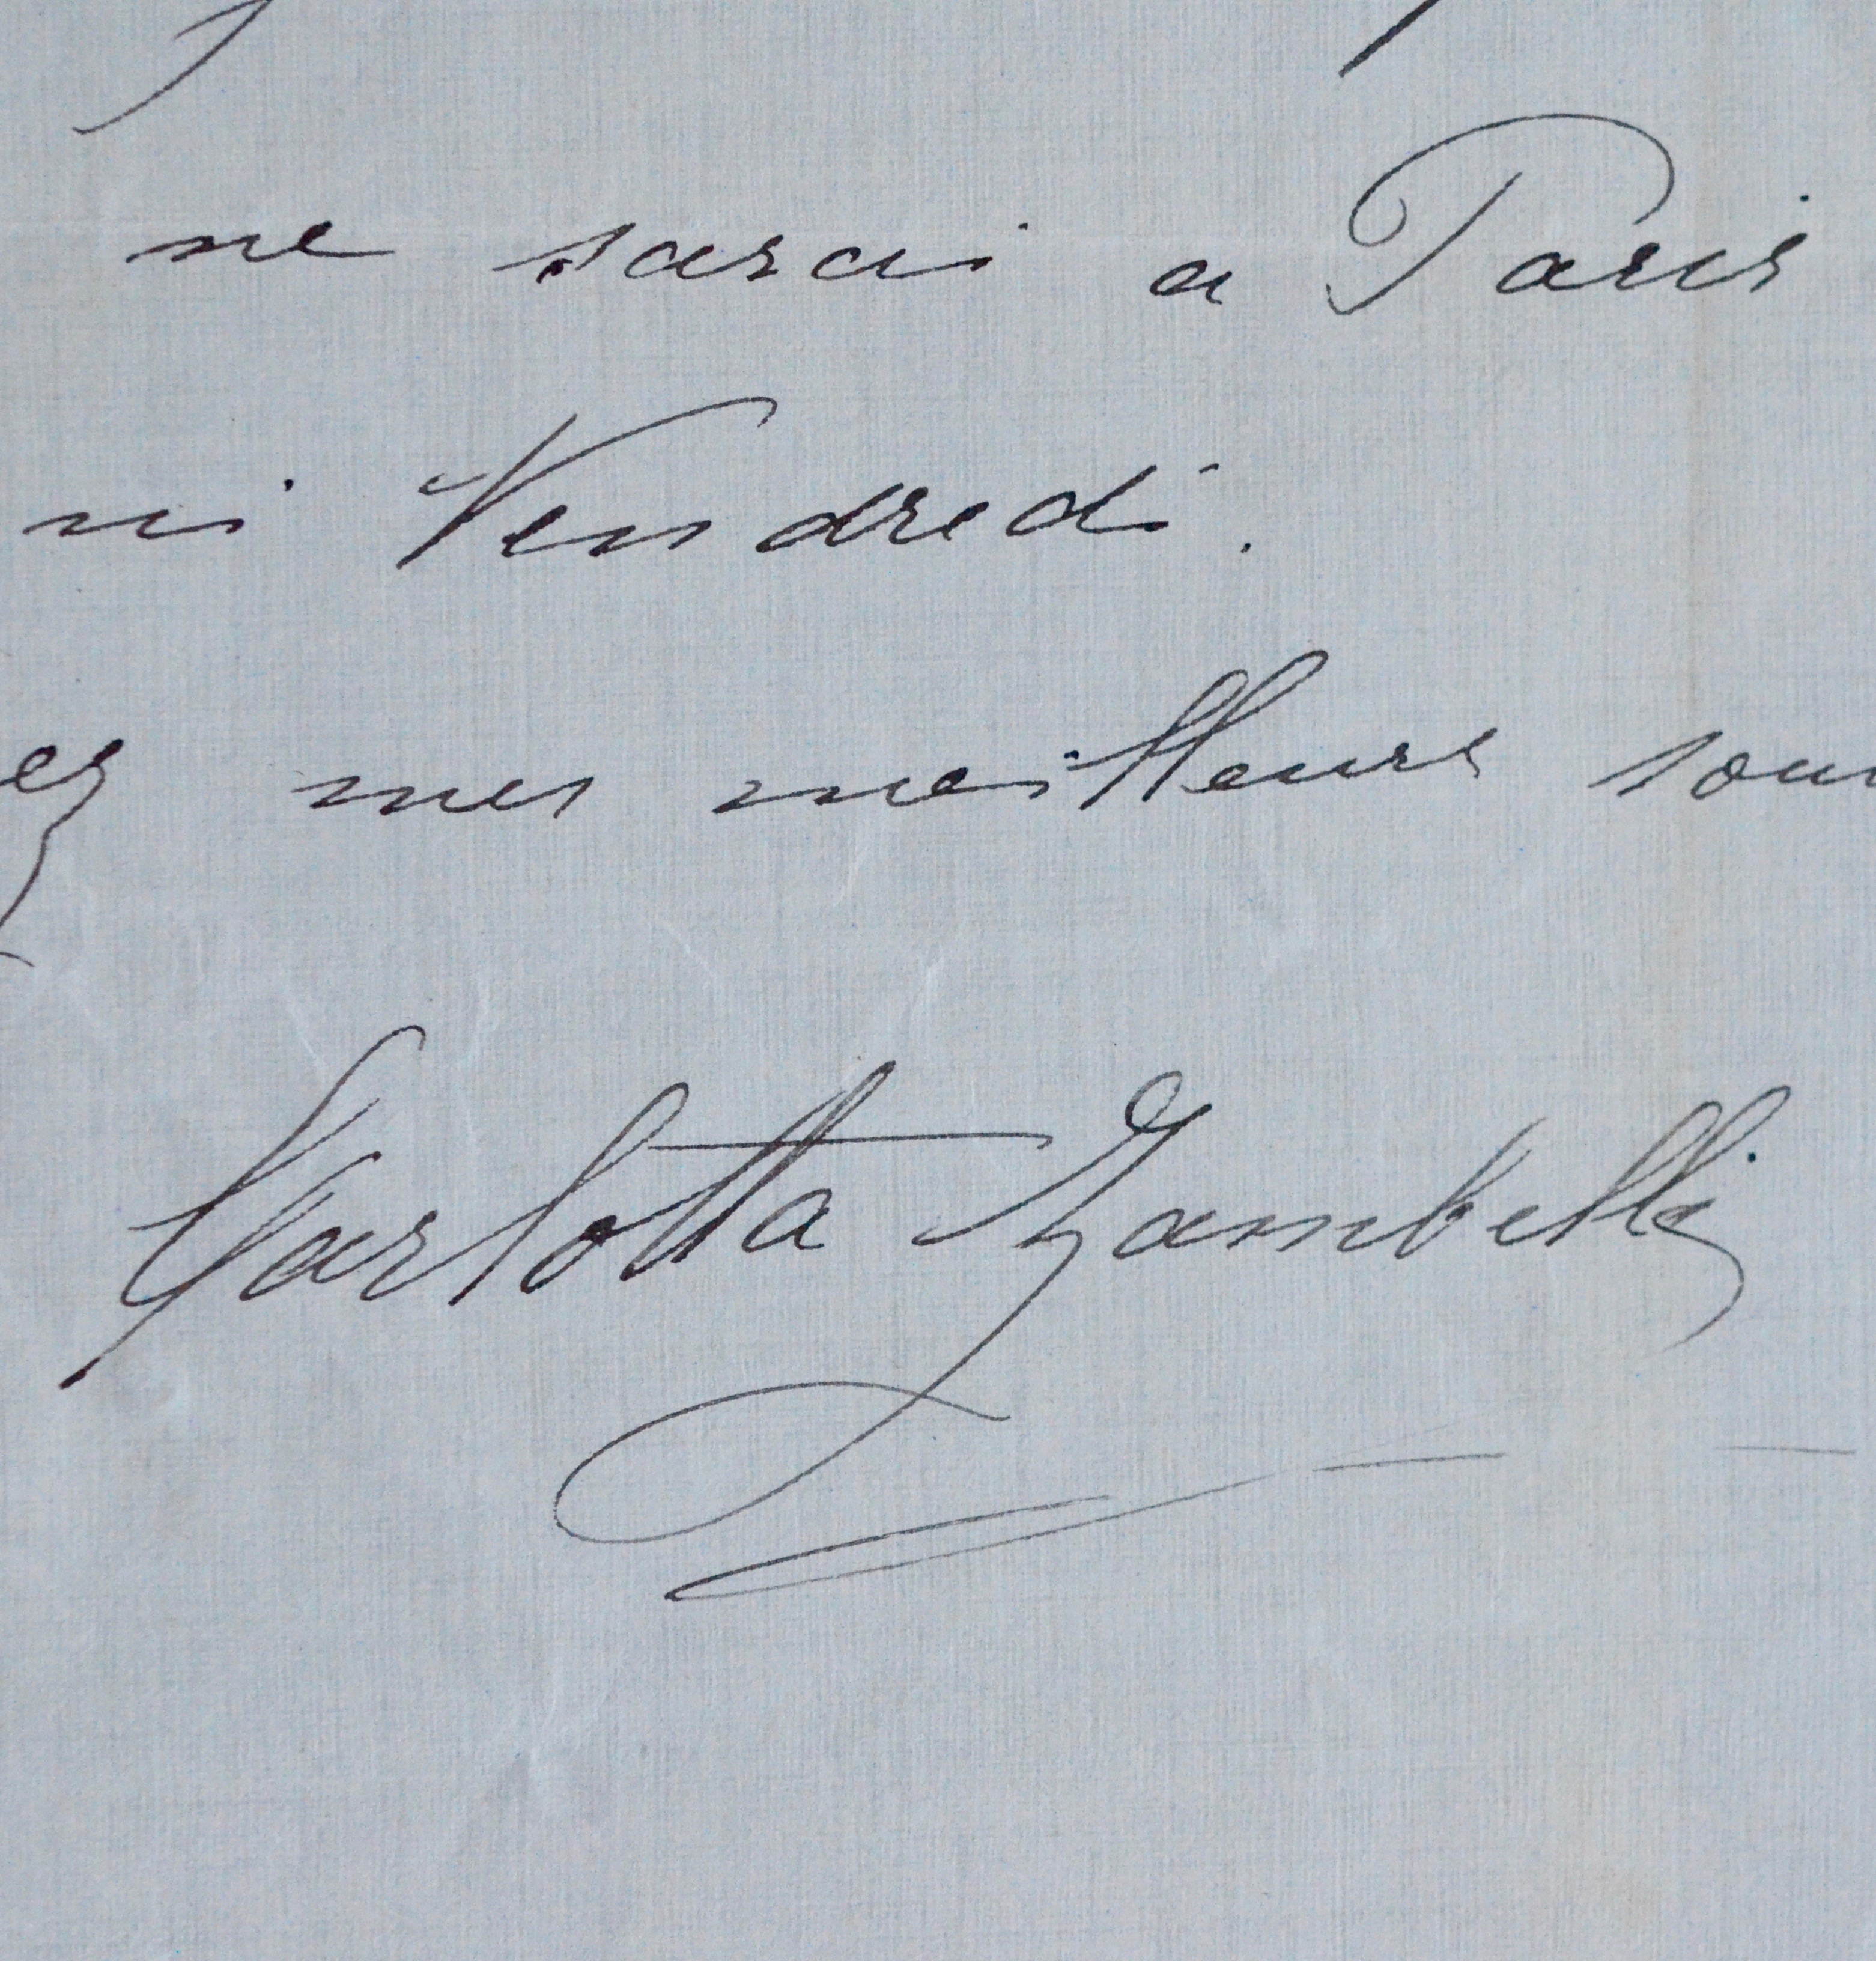 ne sarai a Paris
ni Vendredi.
ez mes meilleurs sou
Carlotta Zambelli